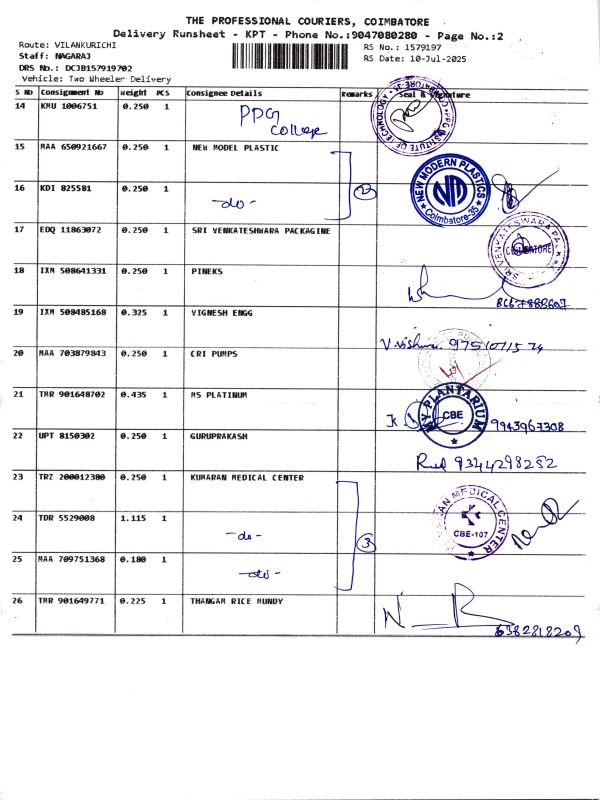 THE PROFESSIONAL COURIERS, COIMBATORE
Delivery Runsheet - KPT - Phone No.:9047080280 - Page No.:2
Route: VILANKURICHI
RS No.: 1579197
Staff: NAGARAJ
RS Date: 10-Jul-2025
DRS No.: DCJB157919702
Vehicle: Two Wheeler Delivery
S NO Consignment No Weight PCS Consignee Details Remarks Seal & Signature
14 KMU 1006751 0.250 1 PPG College
INSTITUTE OF TECHNOLOGY
15 MAA 650921667 0.250 1 NEW MODEL PLASTIC
16 KDI 825581 0.250 1 -do- 2
NEW MODERN PLASTICS
NP
Coimbatore-35
17 EDQ 11863072 0.250 1 SRI VENKATESHWARA PACKAGINE
SRI VENKATESWARA PACK
COIMBATORE
18 IXM 508641331 0.250 1 PINEKS
19 IXM 508485168 0.325 1 VIGNESH ENGG
V. Vishnu 9751071574
20 MAA 703879843 0.250 1 CRI PUMPS
21 TMR 901648702 0.435 1 MS PLATINUM
PLANTARIUM
CBE
9943967308
22 UPT 8150302 0.250 1 GURUPRAKASH
9344298252
23 TRZ 200012380 0.250 1 KUMARAN MEDICAL CENTER
24 TDR 5529008 1.115 1 -do- 3
MEDICAL CENTER
CBE-107
25 MAA 709751368 0.180 1 -do-
26 TMR 901649771 0.225 1 THANGAM RICE MUNDY
6382818209